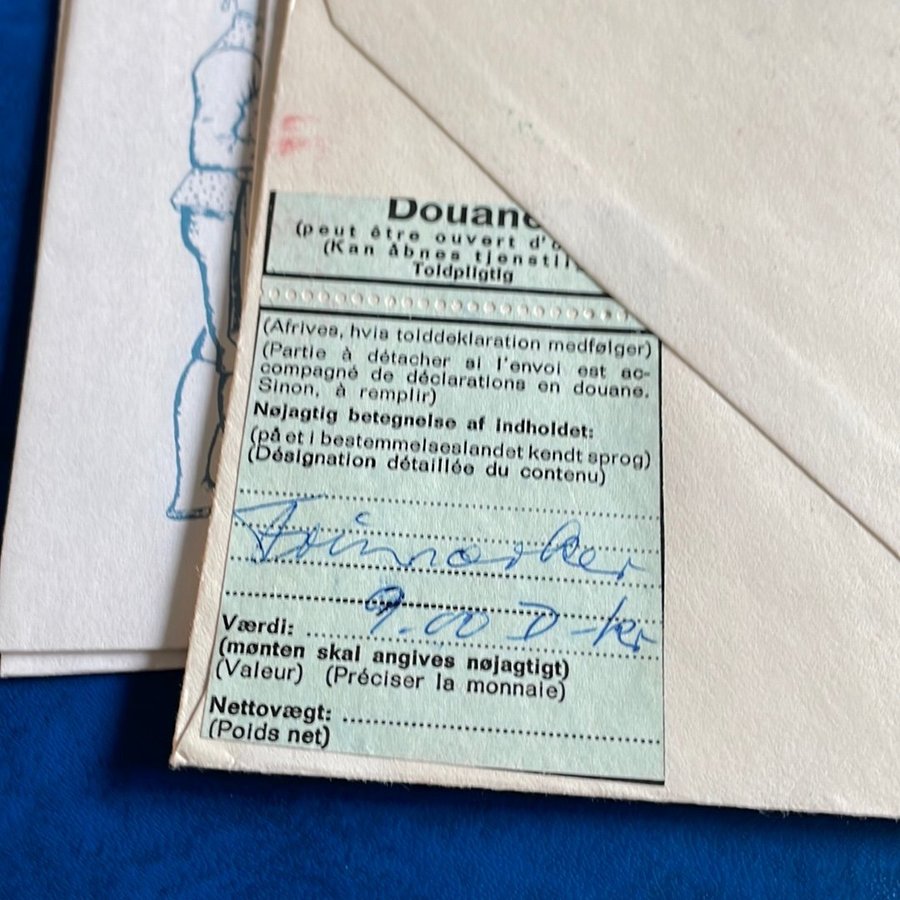 Douane
(peut être ouvert d'o
(Kan åbnes tjenstli
Toldpligtig
(Afrives, hvis tolddeklaration medfølger)
(Partie à détacher si l'envoi est ac-
compagné de déclarations en douane.
Sinon, à remplir)
Nøjagtig betegnelse af indholdet:
(på et i bestemmelseslandet kendt sprog)
(Désignation détaillée du contenu)
Frimærker
Værdi: 9.00 D-kr
(mønten skal angives nøjagtigt)
(Valeur) (Préciser la monnaie)
Nettovægt:
(Poids net)